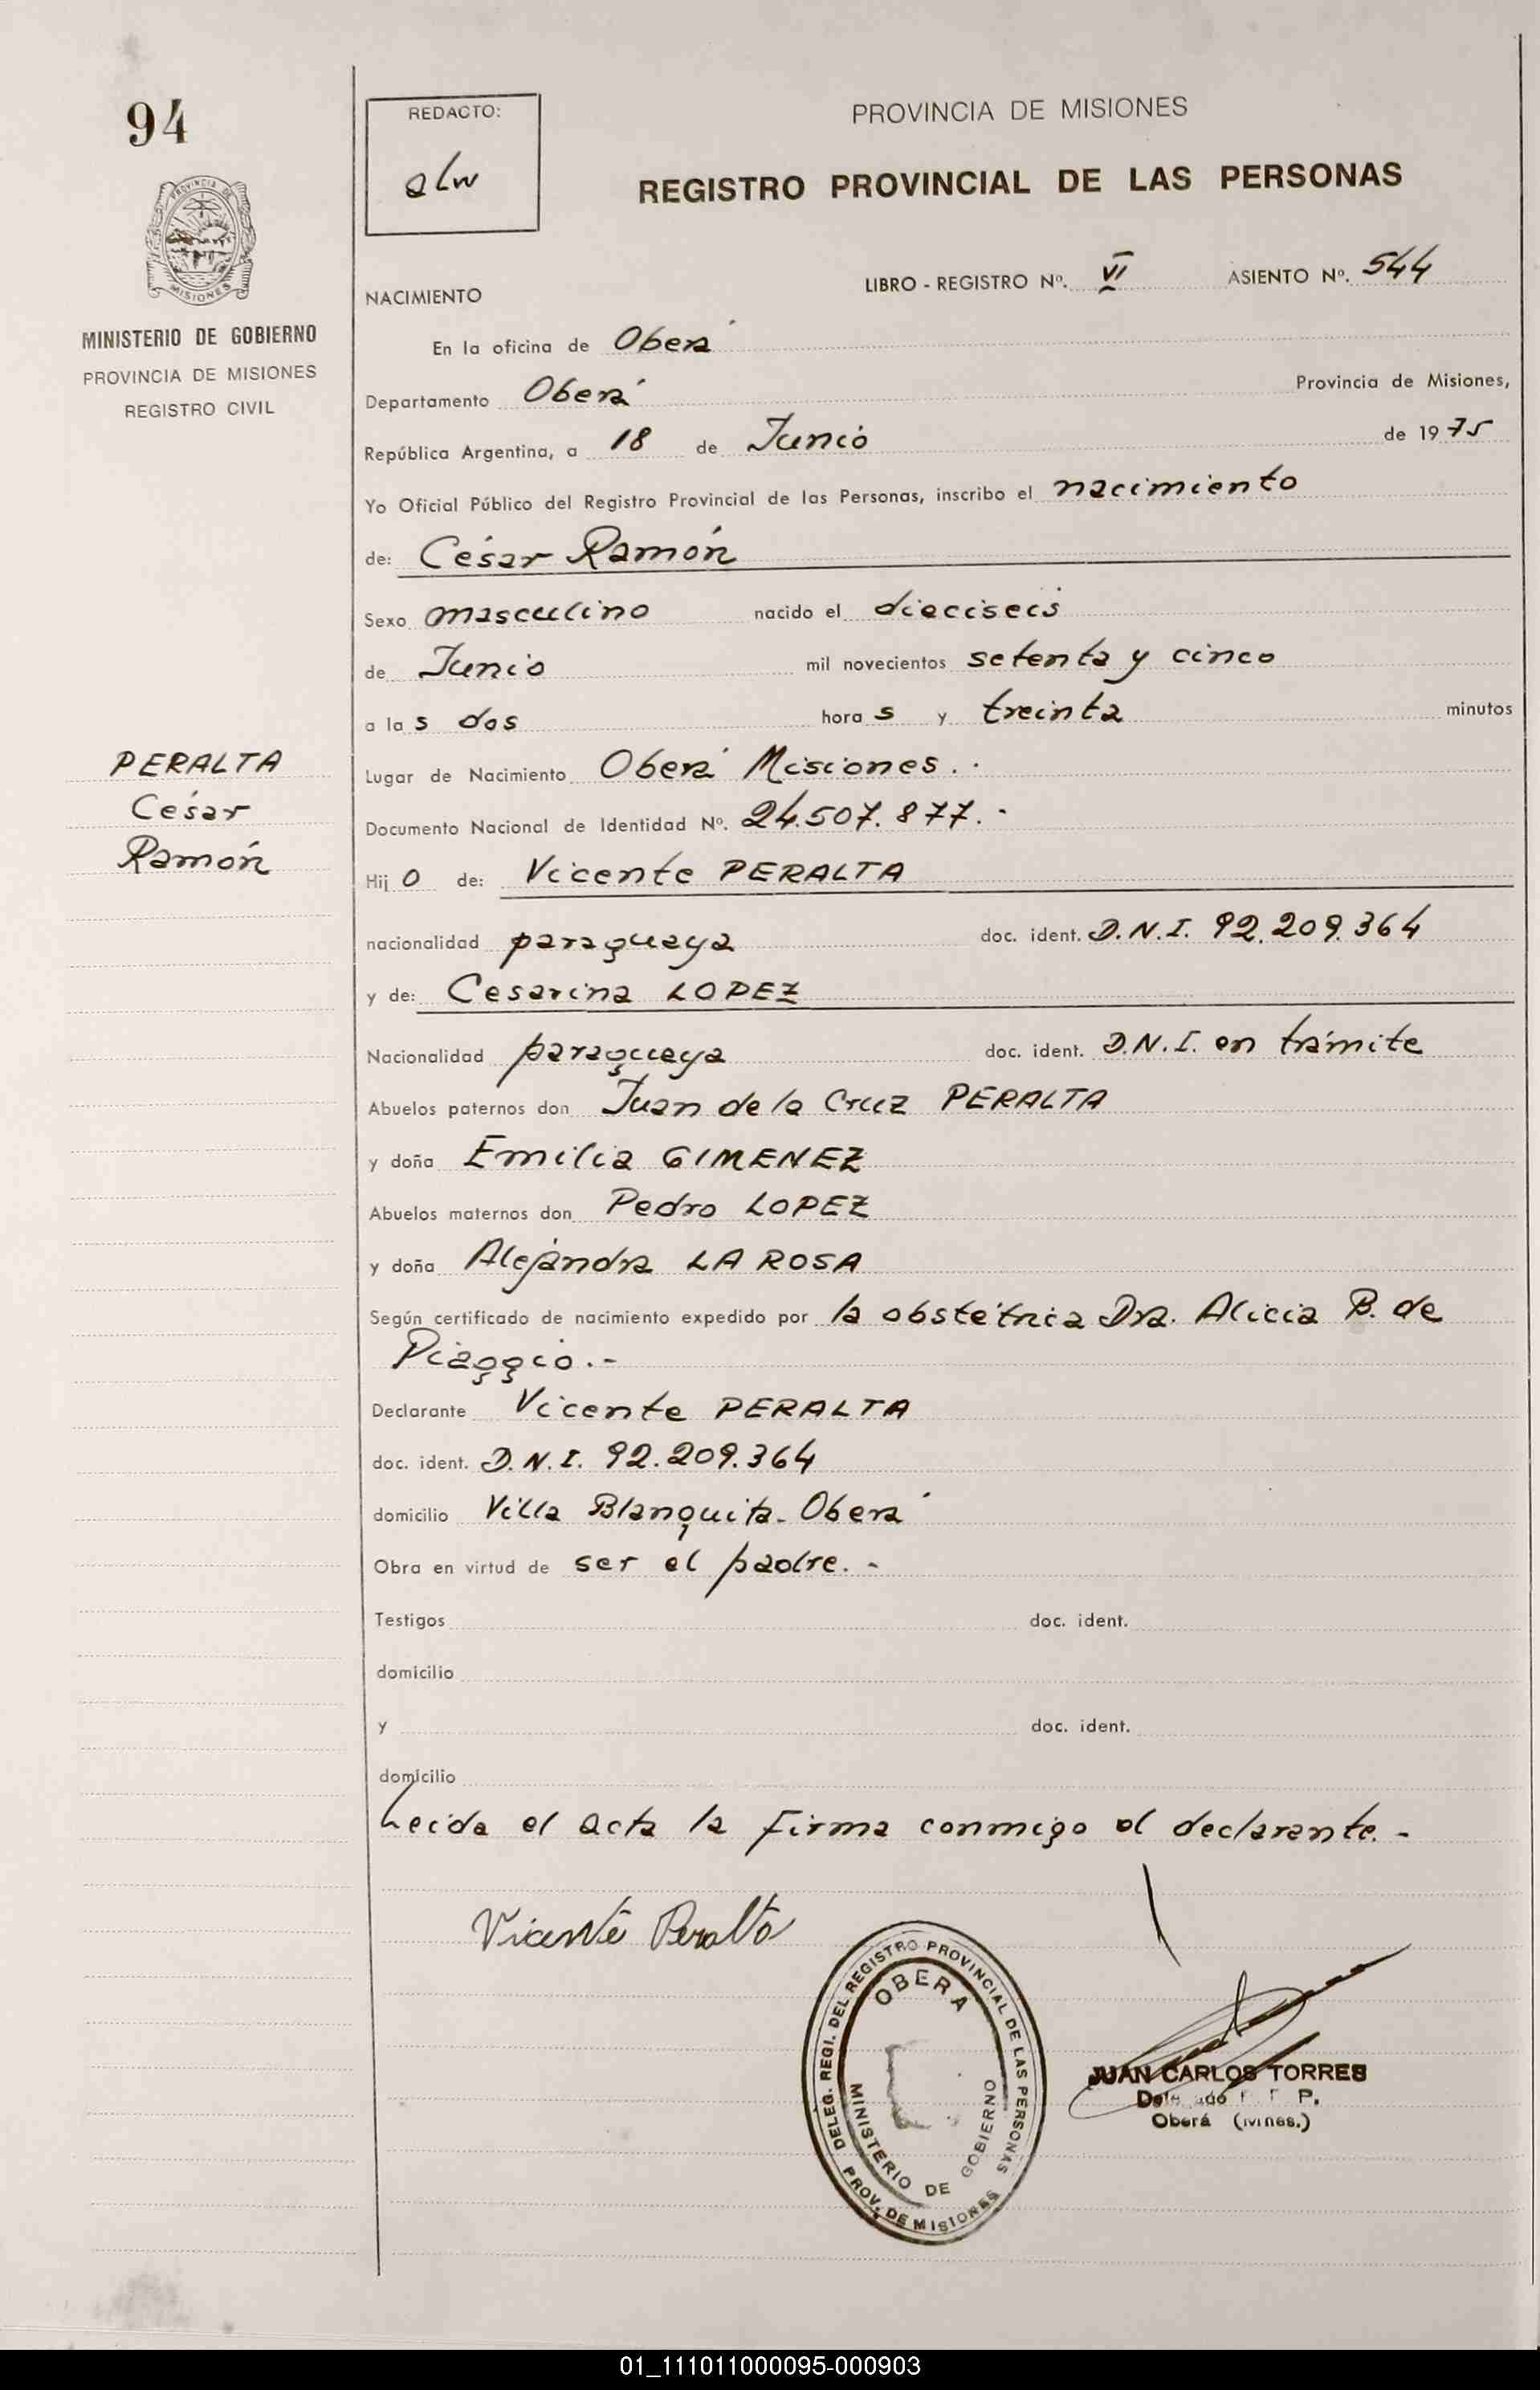 94
REDACTO:
alw
PROVINCIA DE MISIONES
REGISTRO PROVINCIAL DE LAS PERSONAS
PROVINCIA DE
MISIONES
MINISTERIO DE GOBIERNO
PROVINCIA DE MISIONES
REGISTRO CIVIL
NACIMIENTO
LIBRO - REGISTRO Nº. VI ASIENTO Nº. 544
En la oficina de Oberá
Departamento Oberá Provincia de Misiones,
República Argentina, a 18 de Junio de 1975
Yo Oficial Público del Registro Provincial de las Personas, inscribo el nacimiento
de: César Ramón
Sexo masculino nacido el dieciseis
de Junio mil novecientos setenta y cinco
a las dos horas y treinta minutos
PERALTA
César
Ramón
Lugar de Nacimiento Oberá Misiones.-
Documento Nacional de Identidad Nº. 24.507.877.-
Hijo de: Vicente PERALTA
nacionalidad paraguaya doc. ident. D.N.I. 92.209.364
y de: Cesarina LOPEZ
Nacionalidad paraguaya doc. ident. D.N.I. en trámite
Abuelos paternos don Juan de la Cruz PERALTA
y doña Emilia GIMENEZ
Abuelos maternos don Pedro LOPEZ
y doña Alejandra LA ROSA
Según certificado de nacimiento expedido por la obstétrica Dra. Alicia B. de
Piaggio.-
Declarante Vicente PERALTA
doc. ident. D.N.I. 92.209.364
domicilio Villa Blanquita - Oberá
Obra en virtud de ser el padre.-
Testigos doc. ident.
domicilio
y doc. ident.
domicilio
Leida el acta la firma conmigo el declarante.-
Vicente Peralta
DELEG. REGI. DEL REGISTRO PROVINCIAL DE LAS PERSONAS
OBERA
MINISTERIO DE GOBIERNO
PROV. DE MISIONES
JUAN CARLOS TORRES
Oberá (Mnes.)
01_111011000095-000903